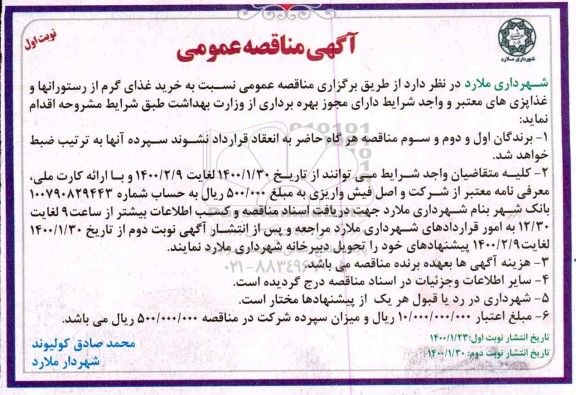 نوبت اول
آگهی مناقصه عمومی
شهرداری ملارد
شهرداری ملارد در نظر دارد از طریق برگزاری مناقصه عمومی نسبت به خرید غذای گرم از رستورانها و
غذاپزی های معتبر و واجد شرایط دارای مجوز بهره برداری از وزارت بهداشت طبق شرایط مشروحه اقدام
نماید:
۱- برندگان اول و دوم و سوم مناقصه هر گاه حاضر به انعقاد قرارداد نشوند سپرده آنها به ترتیب ضبط
خواهد شد.
۲- کلیه متقاضیان واجد شرایط می توانند از تاریخ ۱۴۰۰/۱/۳۰ لغایت ۱۴۰۰/۲/۹ و با ارائه کارت ملی،
معرفی نامه معتبر از شرکت و اصل فیش واریزی به مبلغ ۵۰۰/۰۰۰ ریال به حساب شماره ۱۰۰۷۹۰۸۲۹۴۴۳
بانک شهر بنام شهرداری ملارد جهت دریافت اسناد مناقصه و کسب اطلاعات بیشتر از ساعت ۹ لغایت
۱۲/۳۰ به امور قراردادهای شهرداری ملارد مراجعه و پس از انتشار آگهی نوبت دوم از تاریخ ۱۴۰۰/۱/۳۰
لغایت ۱۴۰۰/۲/۹ پیشنهادهای خود را تحویل دبیرخانه شهرداری ملارد نمایند.
۳- هزینه آگهی ها بعهده برنده مناقصه می باشد.
۴- سایر اطلاعات وجزئیات در اسناد مناقصه درج گردیده است.
۵- شهرداری در رد یا قبول هر یک از پیشنهادها مختار است.
۶- مبلغ اعتبار ۱۰/۰۰۰/۰۰۰/۰۰۰ ریال و میزان سپرده شرکت در مناقصه ۵۰۰/۰۰۰/۰۰۰ ریال می باشد.
تاریخ انتشار نوبت اول: ۱۴۰۰/۱/۲۳
تاریخ انتشار نوبت دوم: ۱۴۰۰/۱/۳۰
محمد صادق کولیوند
شهردار ملارد